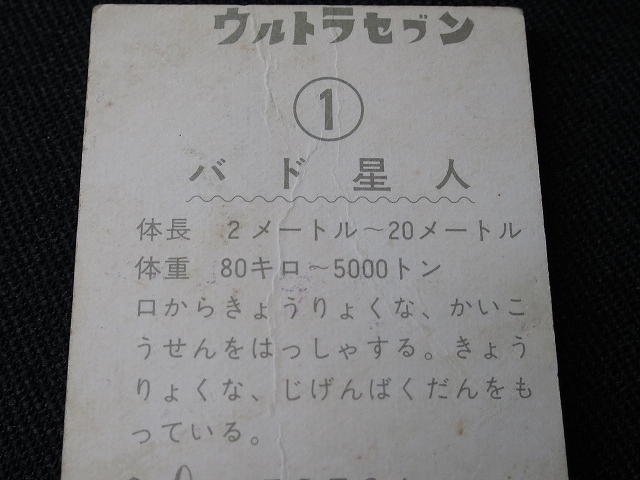 ウルトラセブン
1
バド星人
体長 2メートル～20メートル
体重 80キロ～5000トン
口からきょうりょくな、かいこ
うせんをはっしゃする。きょう
りょくな、じげんばくだんをも
っている。